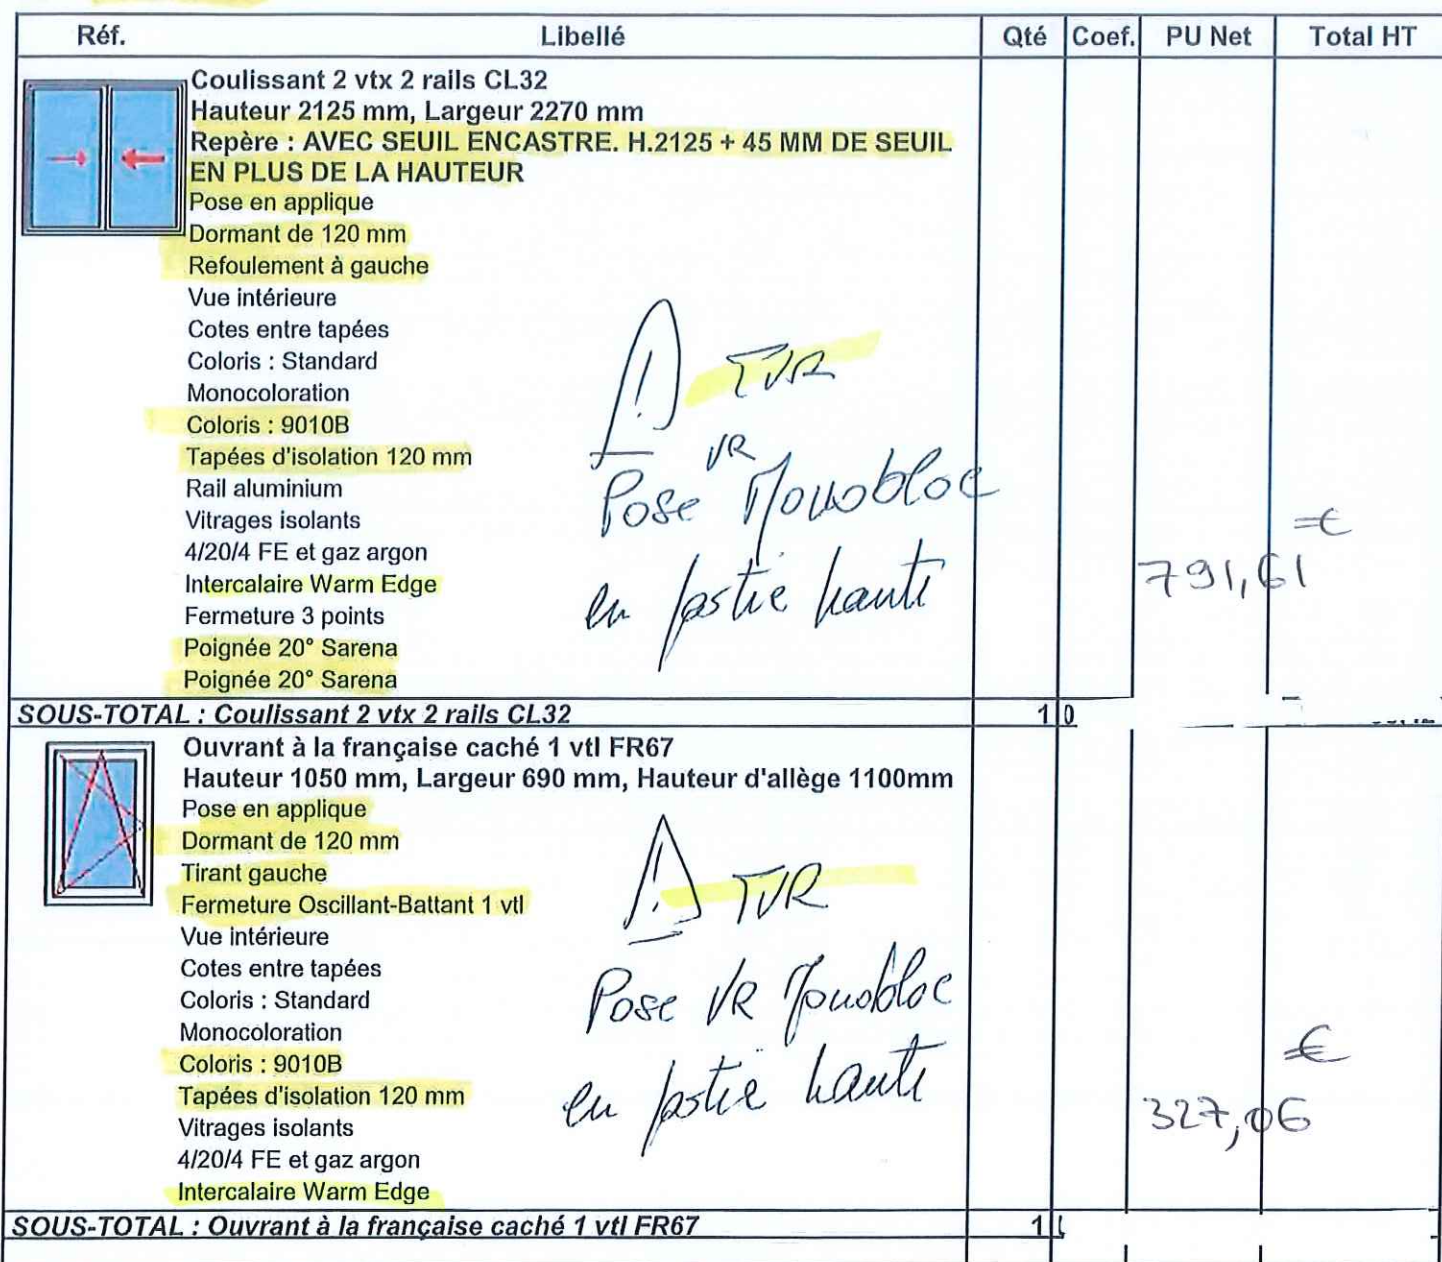 Réf. Libellé Qté Coef. PU Net Total HT
Coulissant 2 vtx 2 rails CL32
Hauteur 2125 mm, Largeur 2270 mm
Repère : AVEC SEUIL ENCASTRE. H.2125 + 45 MM DE SEUIL
EN PLUS DE LA HAUTEUR
Pose en applique
Dormant de 120 mm
Refoulement à gauche
Vue intérieure
Cotes entre tapées
Coloris : Standard
Monocoloration
Coloris : 9010B
Tapées d'isolation 120 mm
Rail aluminium
Vitrages isolants
4/20/4 FE et gaz argon
Intercalaire Warm Edge
Fermeture 3 points
Poignée 20° Sarena
Poignée 20° Sarena
! TVR
VR
Pose Monobloc
en partie haute
€
791,61
SOUS-TOTAL : Coulissant 2 vtx 2 rails CL32 1
Ouvrant à la française caché 1 vtl FR67
Hauteur 1050 mm, Largeur 690 mm, Hauteur d'allège 1100mm
Pose en applique
Dormant de 120 mm
Tirant gauche
Fermeture Oscillant-Battant 1 vtl
Vue intérieure
Cotes entre tapées
Coloris : Standard
Monocoloration
Coloris : 9010B
Tapées d'isolation 120 mm
Vitrages isolants
4/20/4 FE et gaz argon
Intercalaire Warm Edge
! TVR
Pose VR Monobloc
en partie haute
€
327,06
SOUS-TOTAL : Ouvrant à la française caché 1 vtl FR67 1